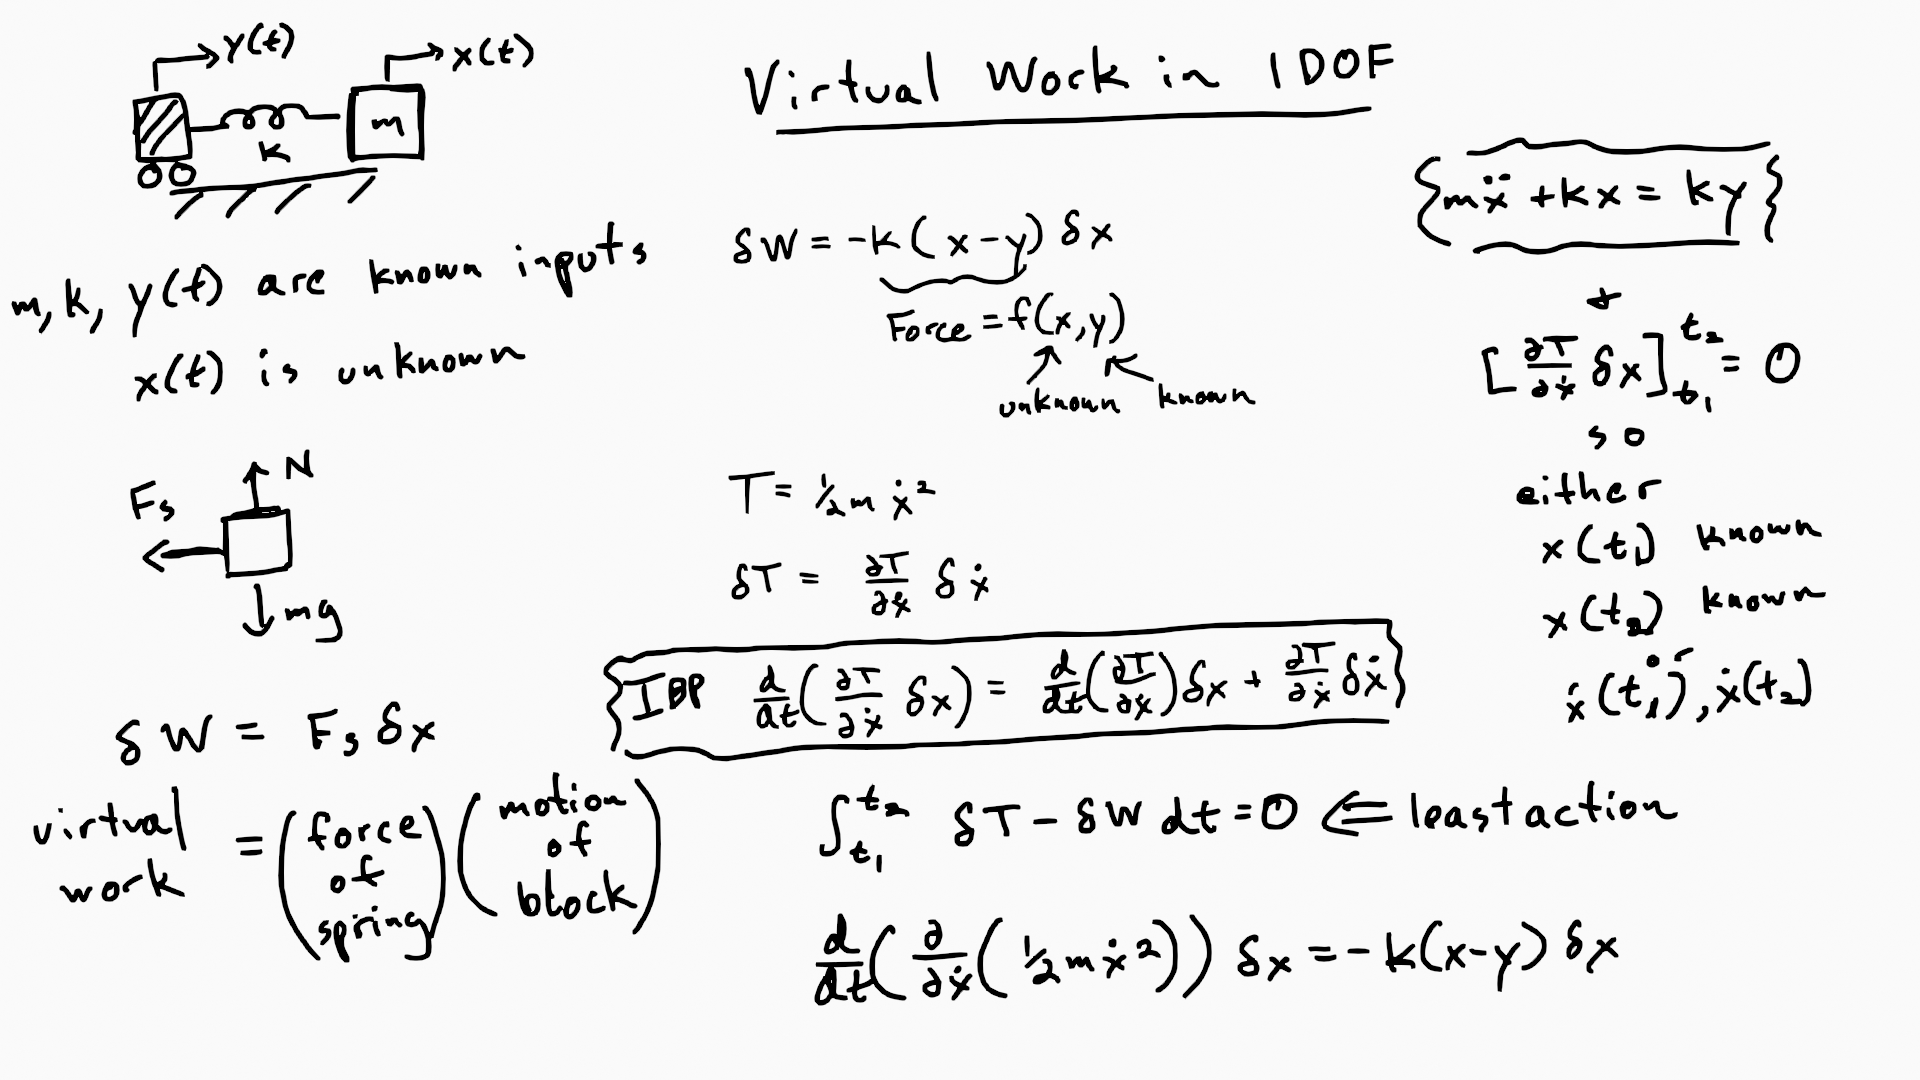 y(t)
x(t)
m
k
Virtual Work in 1DOF
m, k, y(t) are known inputs
x(t) is unknown
Fs
N
mg
δW = Fs δx
virtual work = (force of spring) (motion of block)
δW = -k(x-y) δx
Force = f(x,y)
unknown known
T = 1/2 m ẋ²
δT = ∂T/∂ẋ δẋ
IBP d/dt(∂T/∂ẋ δx) = d/dt(∂T/∂ẋ)δx + ∂T/∂ẋ δẋ
∫_{t1}^{t2} δT - δW dt = 0 ⇐ least action
d/dt(∂/∂ẋ(1/2 m ẋ²)) δx = -k(x-y) δx
{mẍ + kx = ky}
+
[∂T/∂ẋ δx]_{t1}^{t2} = 0
so
either
x(t1) known
x(t2) known
ẋ(t1), ẋ(t2)